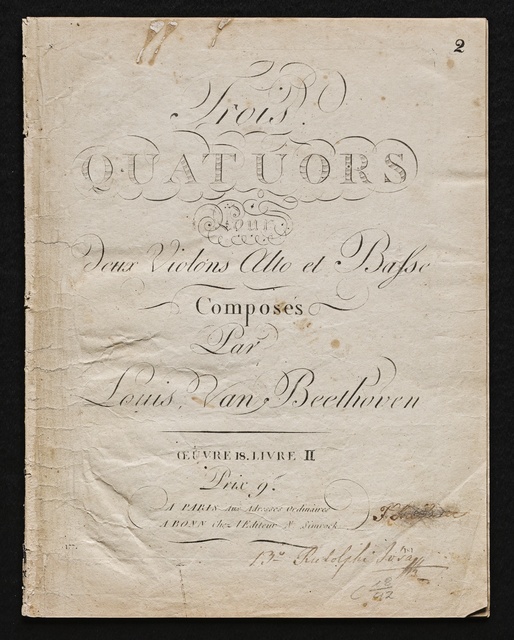 2
Trois
QUATUORS
Pour
Deux Violons Alto et Basse
Composés
Par
Louis Van Beethoven
ŒUVRE 18. LIVRE II
Prix 9.
A PARIS Aux Adresses Ordinaires
A BONN Chez l'Editeur N. Simrock
13. Rudolphi